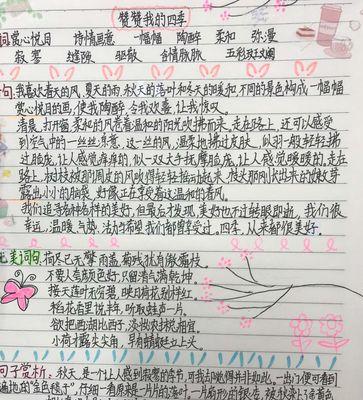 赞赞我的四季
词 赏心悦目 诗情画意 一幅幅 陶醉 柔和 弥漫
寂寥 缝隙 驱散 含情脉脉 五彩斑斓
句 我喜欢春天的风,夏天的雨,秋天的落叶和冬天的暖和,不同的景色构成一幅幅
赏心悦目的画,使我陶醉,令我欢喜,让我惊叹。
清晨,打开窗,柔和的风卷着温和的阳光吹拂而来,走在路上,还可以感受
到空气中的一丝丝凉意,这一丝的风,温柔地拂过皮肤,似羽一般轻轻拂
过脸庞,让人感觉痒痒的,似一双大手抚摩脸庞,让人感觉暖暖的,走在
路上,树枝被那调皮的风吹得轻轻摇动起来,枝头那刚长出来的嫩芽
露出小小的脑袋,好像正在享受着这温和的春风。
我们追寻各种各样的美好,但最后才发现,美好也不过转眼即逝,我们很
幸运,温暖,气势,活力,希望我们都曾享受过,四季,从来都很美好。
优美诗句 荷尽已无擎雨盖,菊残犹有傲霜枝。
不要人夸颜色好,只留清气满乾坤。
接天莲叶无穷碧,映日荷花别样红。
稻花香里说丰年,听取蛙声一片。
欲把西湖比西子,淡妆浓抹总相宜。
小荷才露尖尖角,早有蜻蜓立上头。
句子赏析:秋天,是一个让人感到寂寥的季节,可我却觉得并非如此。一出门便可看到
遍地的“金色毯子”,仔细一看原来是一片片的落叶,一片扇形的银杏